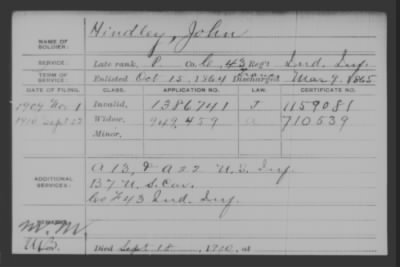 Hindley, John
NAME OF SOLDIER:
SERVICE: Late rank, P. Co. C, 43 Reg't Ind. Inf.
TERM OF SERVICE: Enlisted Oct 15, 1864 Discharged Mar 9, 1865
DATE OF FILING. CLASS. APPLICATION NO. LAW. CERTIFICATE NO.
1907 Nov 1 Invalid, 1386741 J 1159081
1910 Sept 22 Widow, 949,459 710539
Minor,
ADDITIONAL SERVICES:
A 13, & A 22 U.S. Inf.
B 7 U.S. Cav.
Co F 43 Ind. Inf.
REMARKS:
Died Sept 18, 1910, at